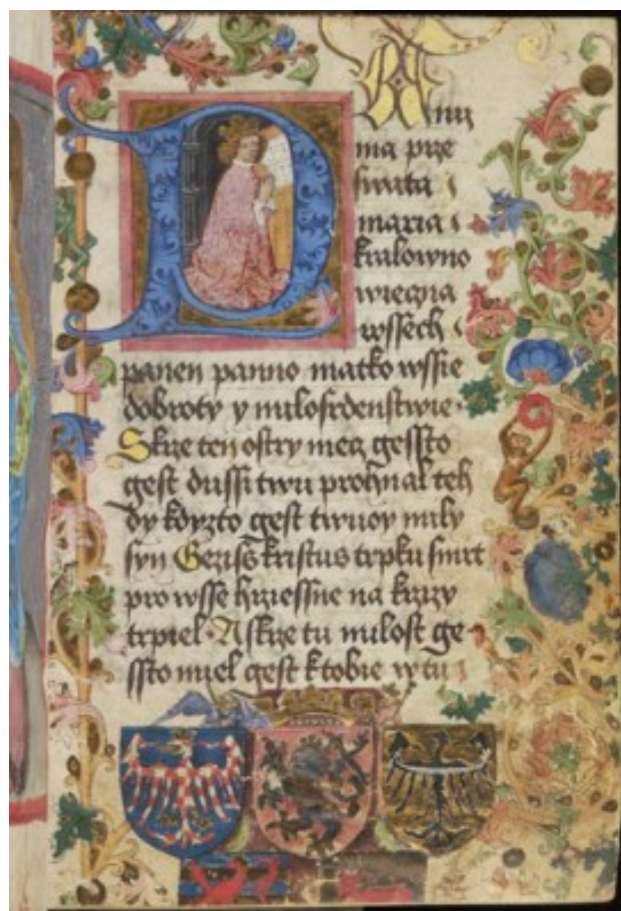 ma prze
swata
maria
kralowno
wieczna
wssech
panen panno matko wssie
dobroty y milosrdenstwie
Skrze ten ostry mecz gessto
gest dussi twu prohnal teh
dy kdyzto gest twuoy mily
syn Geziss kristus trpku smrt
pro wsse hrziessne na krzizy
trpiel A skrze tu milost ge
ssto miel gest k tobie w tu